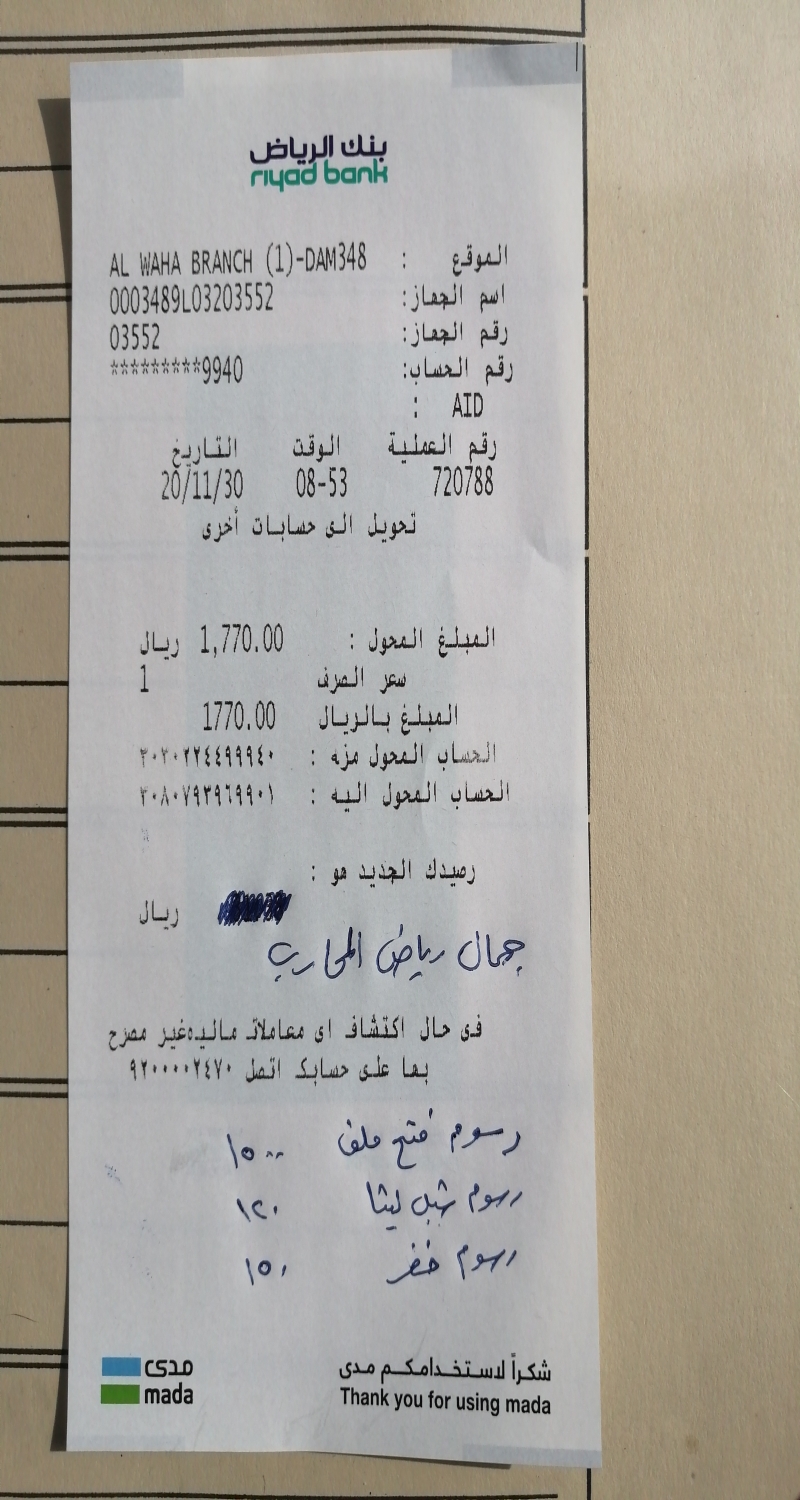 بنك الرياض
riyad bank
الموقع : AL WAHA BRANCH (1)-DAM348
اسم الجهاز: 0003489L03203552
رقم الجهاز: 03552
رقم الحساب: *********9940
AID :
رقم العملية الوقت التاريخ
720788 08-53 20/11/30
تحويل الى حسابات أخرى
المبلغ المحول : 1,770.00 ريال
سعر الصرف 1
المبلغ بالريال 1770.00
الحساب المحول منه : ٣٠٢٠٢٢٤٤٩٩٩٤٠
الحساب المحول اليه : ٣٠٨٠٧٩٣٩٦٩٩٠١
رصيدك الجديد هو :
ريال
جمال رياض المحارب
فى حال اكتشاف اى معاملات ماليه غير مصرح
بها على حسابك اتصل ٩٢٠٠٠٠٢٤٧٠
رسوم فتح ملف ١٥٠٠
رسوم ١٢٠
رسوم ١٥٠
مدى
mada
شكراً لاستخدامكم مدى
Thank you for using mada